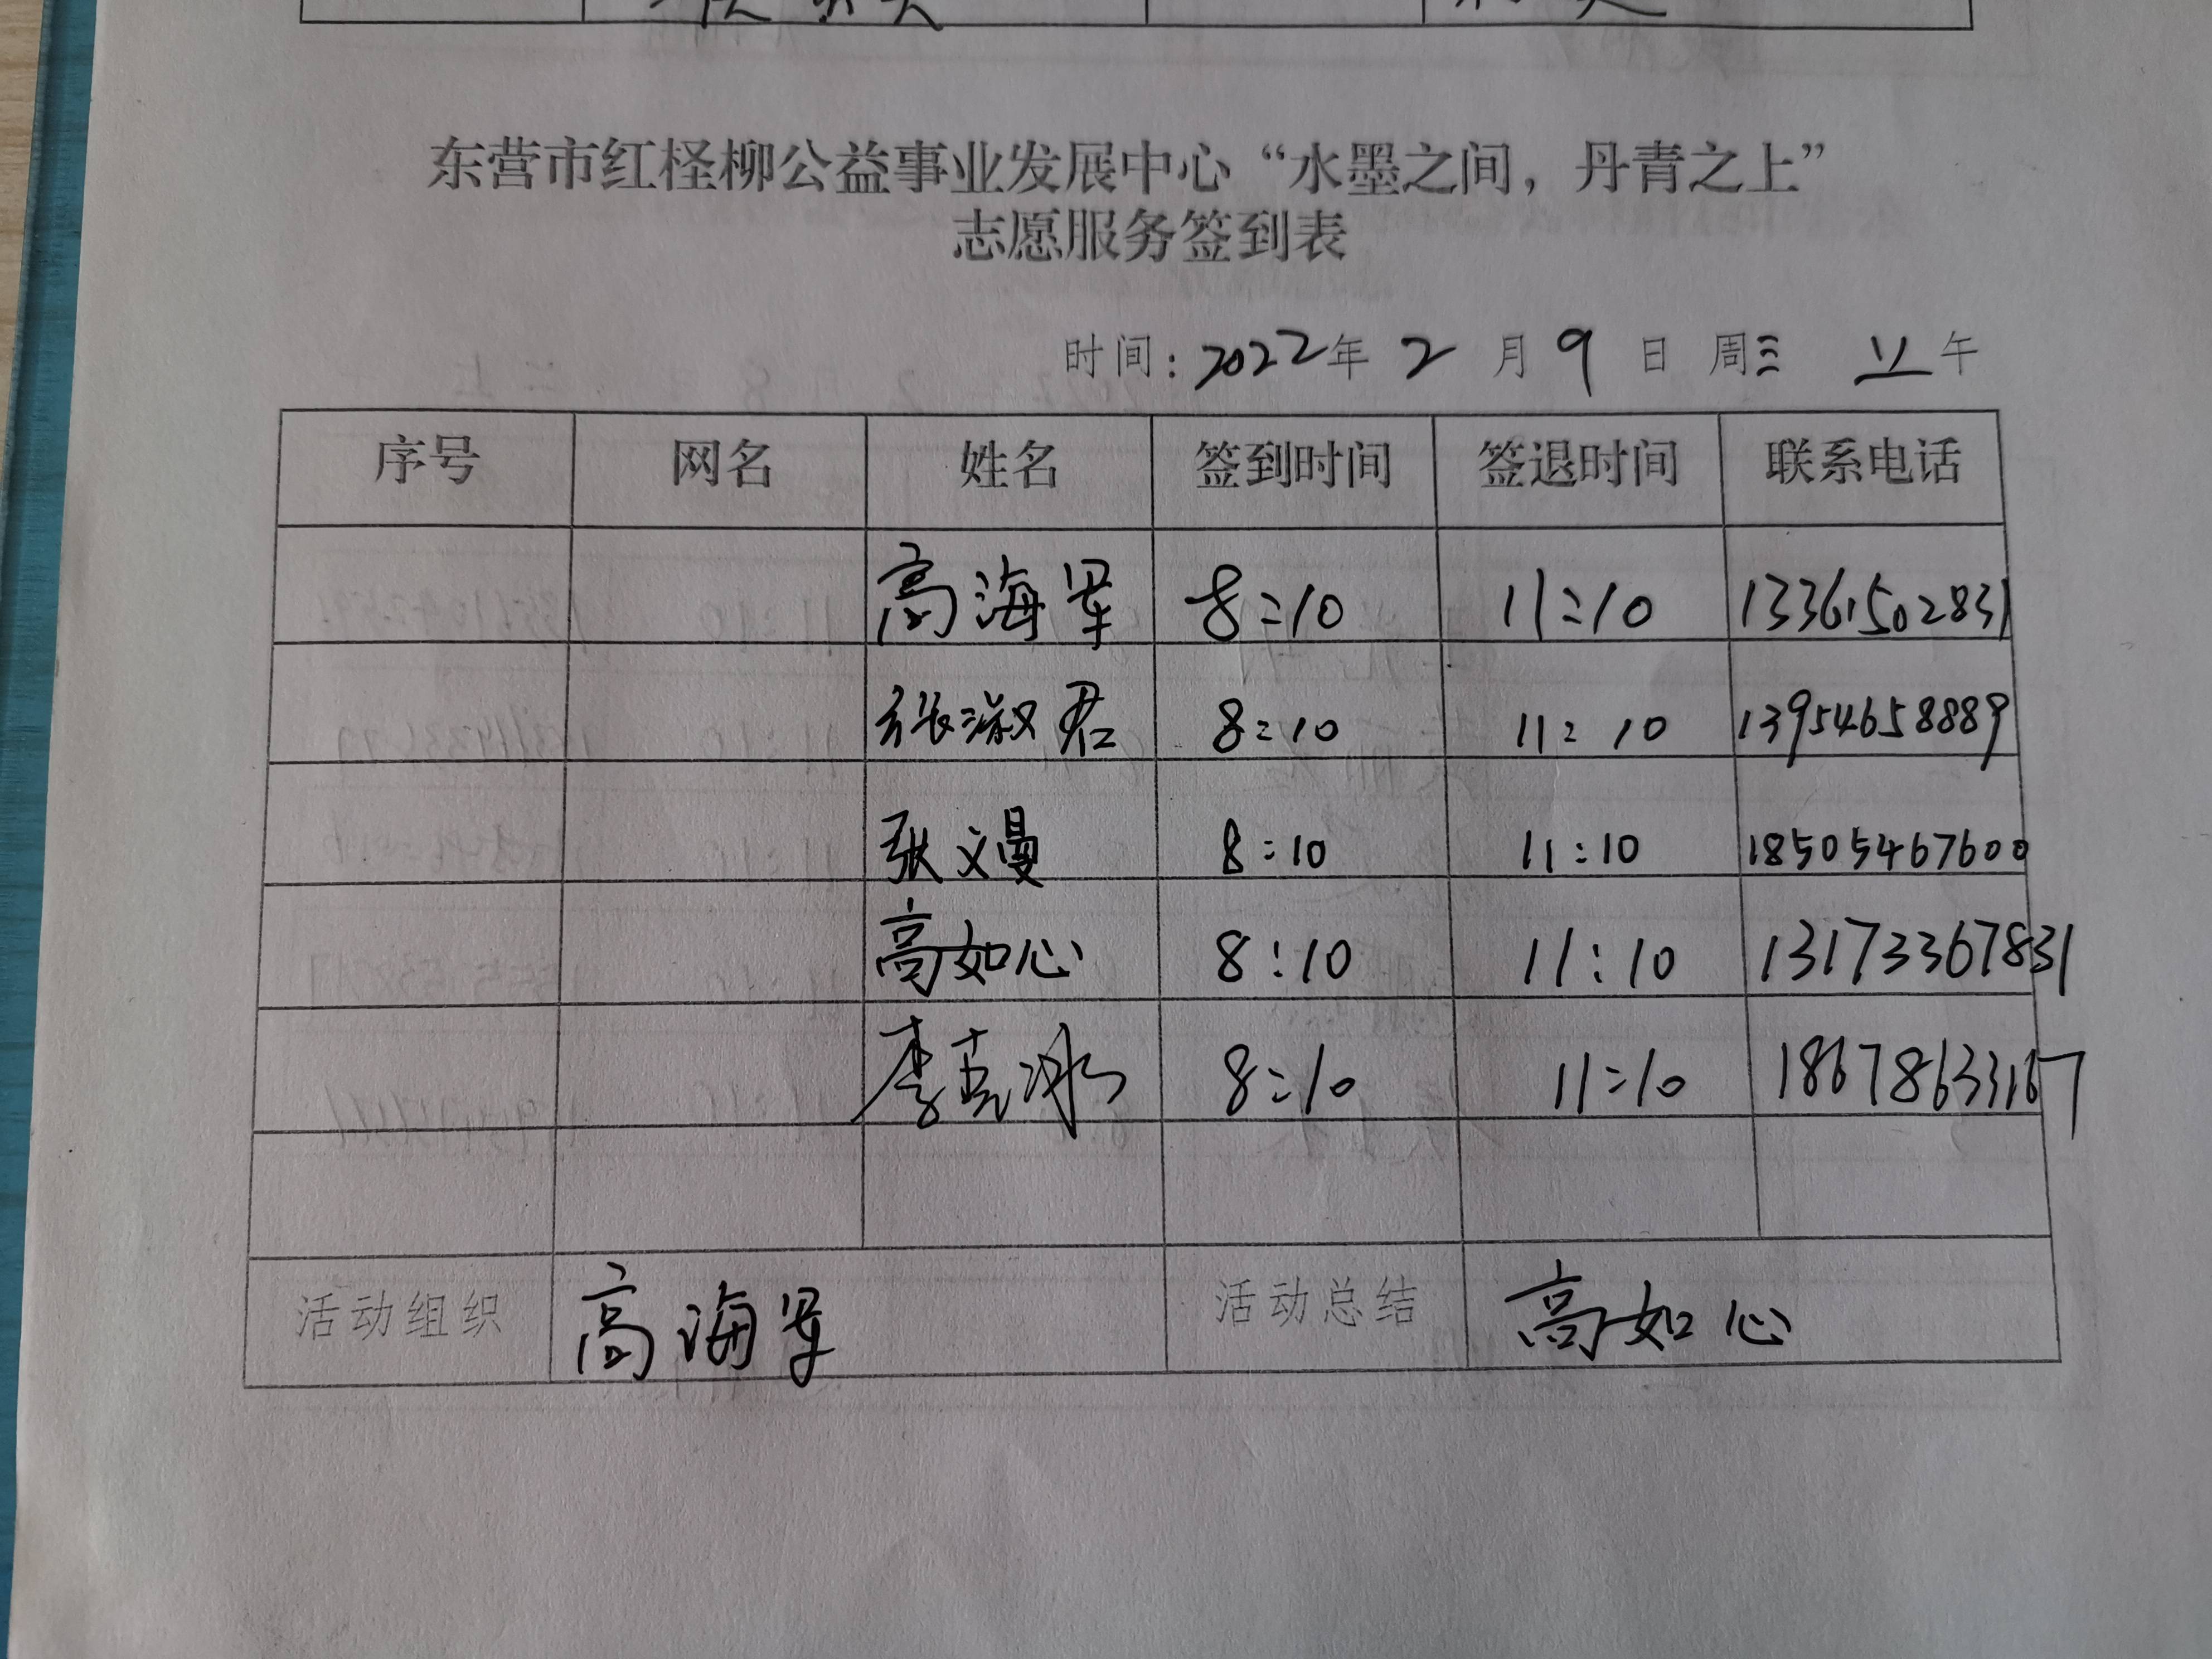 东营市红柽柳公益事业发展中心“水墨之间，丹青之上”
志愿服务签到表
时间：2022年 2 月 9 日 周三 上午
序号 网名 姓名 签到时间 签退时间 联系电话
高海军 8:10 11:10 13361502831
张淑君 8:10 11:10 13954658889
张文曼 8:10 11:10 18505467600
高如心 8:10 11:10 13173367831
李克冰 8:10 11:10 18678633167
活动组织 高海军 活动总结 高如心